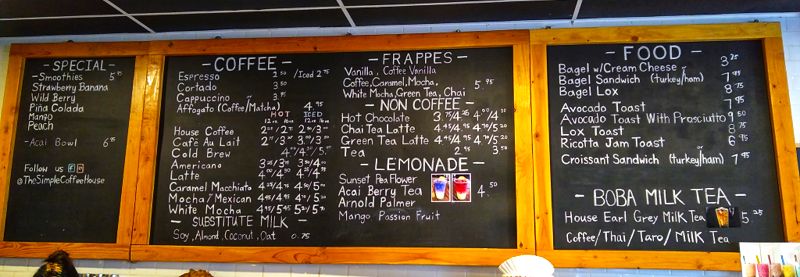 - SPECIAL -
- Smoothies 5.95
Strawberry Banana
Wild Berry
Piña Colada
Mango
Peach
- Acai Bowl 6.95
Follow us
@TheSimpleCoffeeHouse
- COFFEE -
Espresso 2.50 /Iced 2.75
Cortado 3.50
Cappuccino
Affogato (Coffee/Matcha) 4.95
HOT ICED
12oz 16oz
House Coffee
Café Au Lait
Cold Brew
Americana
Latte
Caramel Macchiato
Mocha/Mexican
White Mocha
- SUBSTITUTE MILK -
Soy, Almond, Coconut, Oat 0.75
- FRAPPES -
Vanilla, Coffee Vanilla
Coffee, Caramel, Mocha, 5.95
White Mocha, Green Tea, Chai
- NON COFFEE -
Hot Chocolate 3.75/4.25
Chai Tea Latte
Green Tea Latte
Tea 2.95 3.50
- LEMONADE -
Sunset Pea Flower
Acai Berry Tea 4.50
Arnold Palmer
Mango Passion Fruit
- FOOD -
Bagel w/Cream Cheese 3.25
Bagel Sandwich (turkey/ham) 7.95
Bagel Lox 8.75
Avocado Toast 7.95
Avocado Toast With Prosciutto 9.50
Lox Toast 8.75
Ricotta Jam Toast 6.95
Croissant Sandwich (turkey/ham) 7.95
- BOBA MILK TEA -
House Earl Grey Milk Tea 5.25
Coffee/Thai/Taro/Milk Tea